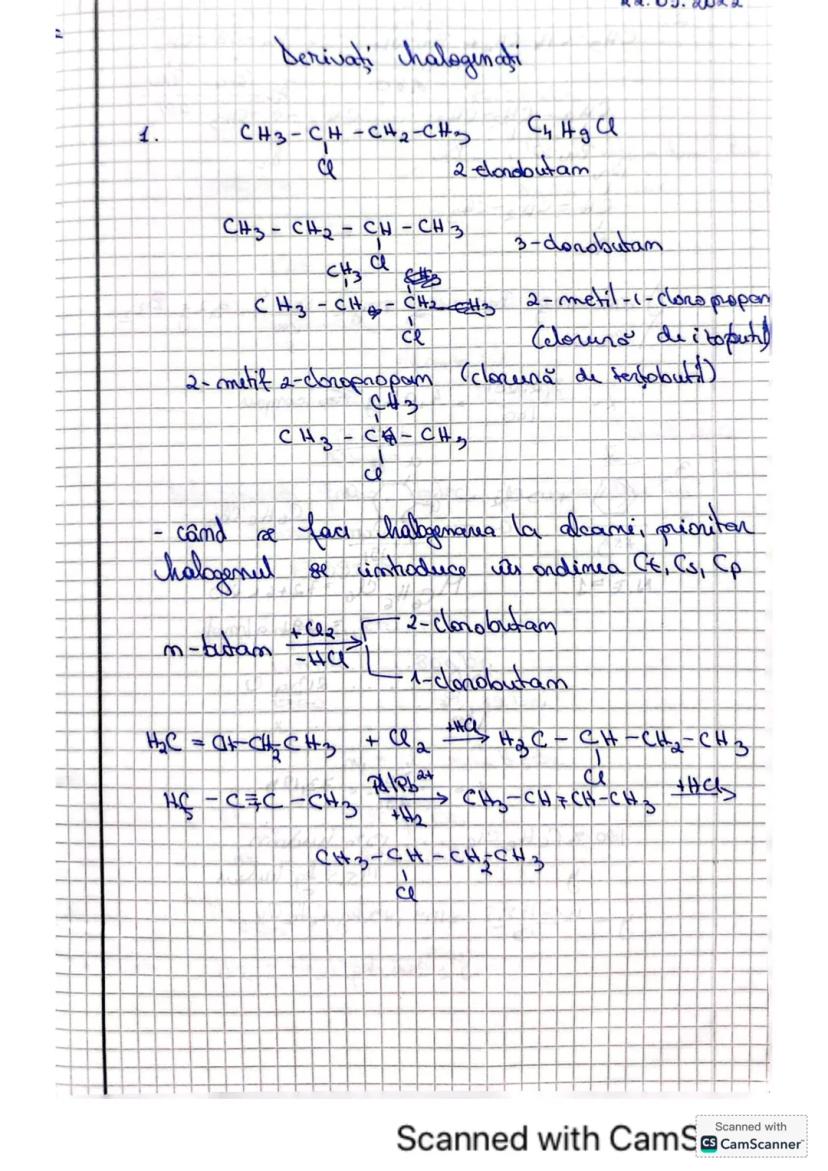 Derivați halogenați
1. CH3 - CH - CH2 - CH3 C4H9Cl
Cl 2 clorobutan
CH3 - CH2 - CH - CH3
Cl 3-clorobutan
CH3
CH3 - CH - CH2 2-metil-1-cloropropan
Cl (clorură de izobutil)
2-metil 2-cloropropan (clorură de terțobutil)
CH3
CH3 - C - CH3
Cl
- când se face halogenarea la alcani, prioritar
halogenul se introduce în ordinea Ct, Cs, Cp
+Cl2 2-clorobutan
n-butan
-HCl 1-clorobutan
H2C = CH-CH2-CH3 + Cl2 +HCl → H3C - CH - CH2-CH3
Cl
H3C - C≡C - CH3 Pd/Pb2+ +H2 → CH3-CH=CH-CH3 +HCl →
CH3-CH-CH2-CH3
Cl
Scanned with CamS
Scanned with
CS CamScanner